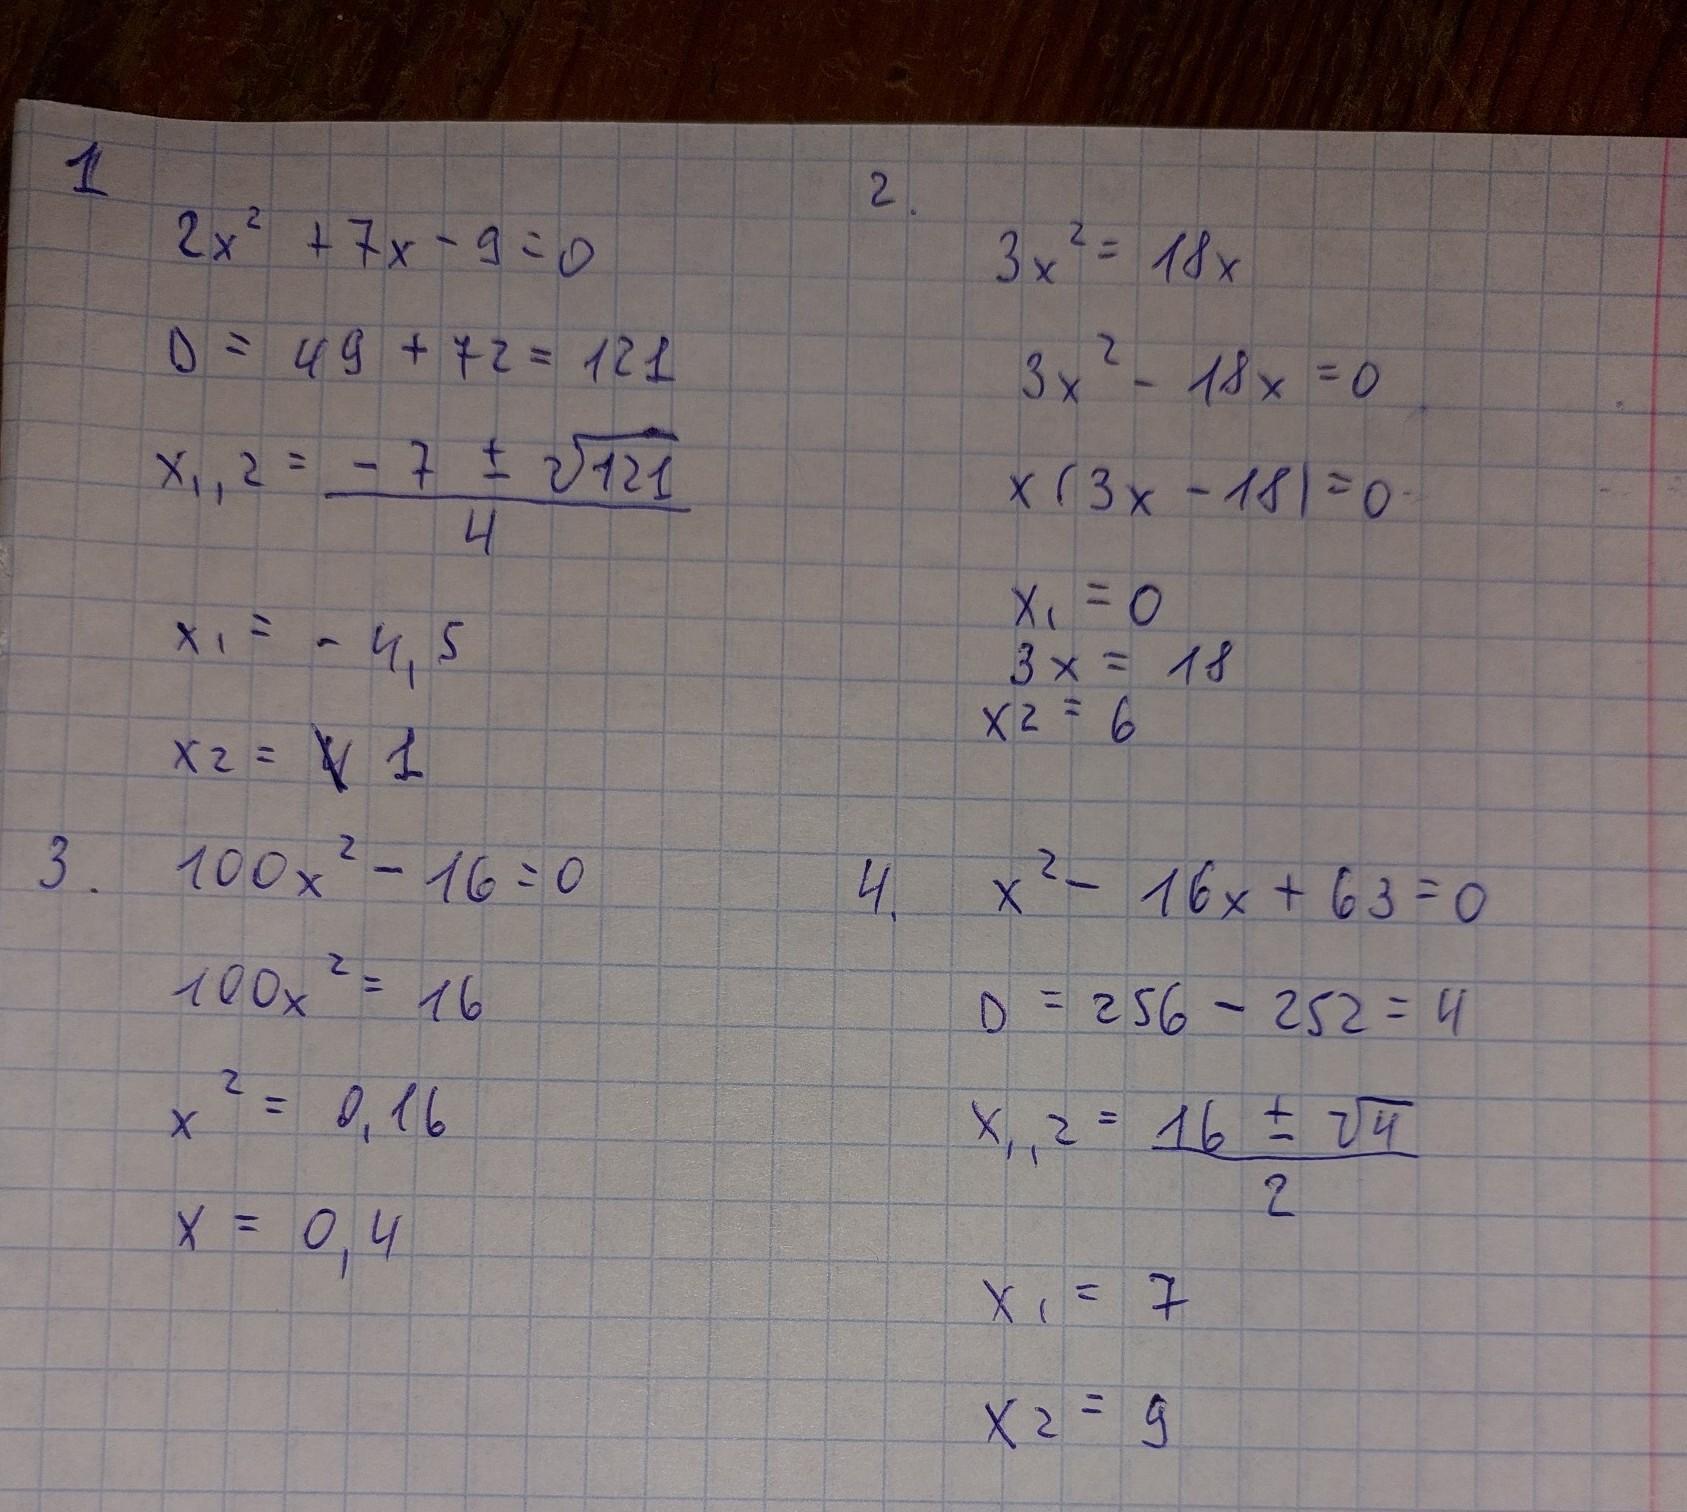 1
2x² + 7x - 9 = 0
D = 49 + 72 = 121
x₁,₂ = (-7 ± √121) / 4
x₁ = - 4,5
x2 = 1
2.
3x² = 18x
3x² - 18x = 0
x(3x - 18) = 0
x₁ = 0
3x = 18
x2 = 6
3. 100x² - 16 = 0
100x² = 16
x² = 0,16
x = 0,4
4. x² - 16x + 63 = 0
D = 256 - 252 = 4
x₁,₂ = (16 ± √4) / 2
x₁ = 7
x2 = 9